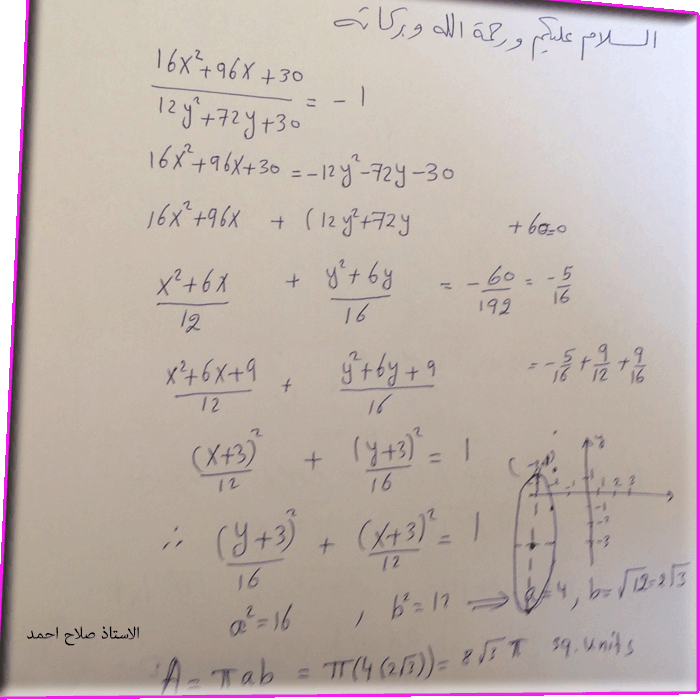 السلام عليكم ورحمة الله وبركاته
16x²+96x+30 / 12y²+72y+30 = -1
16x²+96x+30 = -12y²-72y-30
16x²+96x + (12y²+72y +60=0
x²+6x / 12 + y²+6y / 16 = -60/192 = -5/16
x²+6x+9 / 12 + y²+6y+9 / 16 = -5/16 + 9/12 + 9/16
(x+3)² / 12 + (y+3)² / 16 = 1
∴ (y+3)² / 16 + (x+3)² / 12 = 1
a²=16 , b²=12 ⟹ a=4, b=√12=2√3
A = πab = π(4(2√3)) = 8√3 π sq. units
y
-1 1 2 3
-1
-2
-3
الاستاذ صلاح احمد